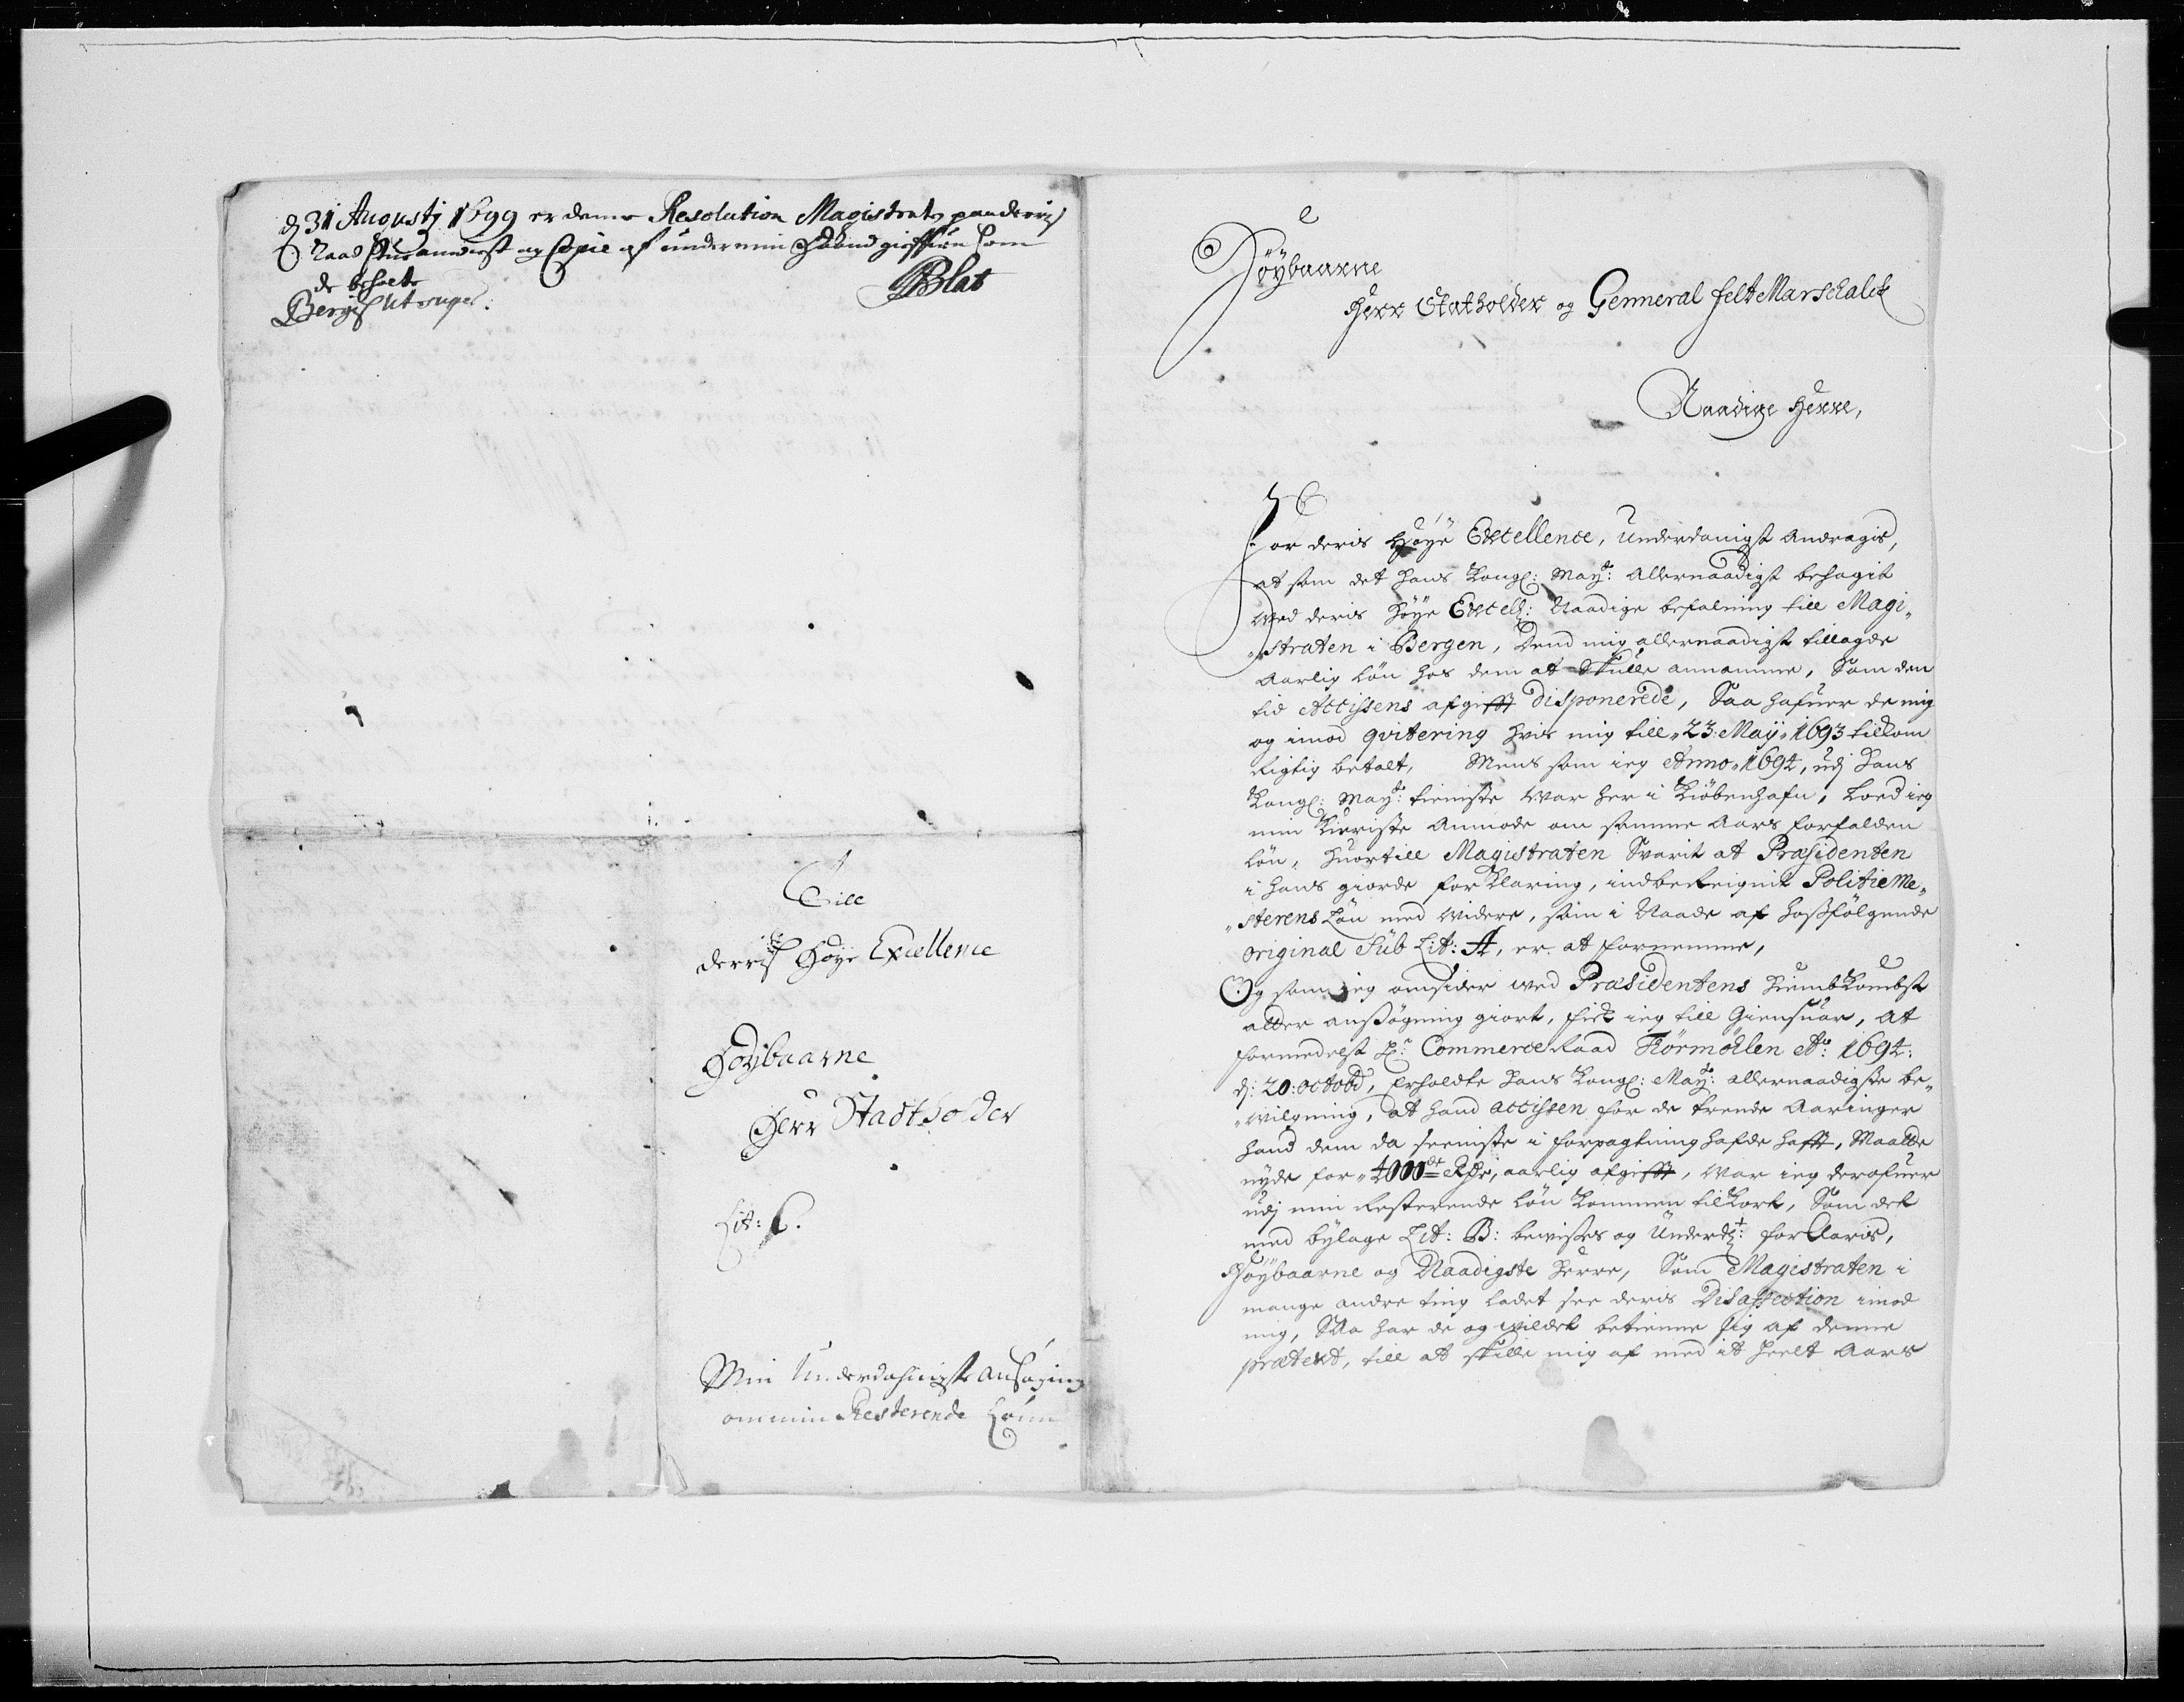 d 31 Augustj 1699 er denne Resolution Magistrats paa derris
Raad stue anwiist og Copie af under min Haand gifven som
de beholte
Bergh ut supra:
Blat
Till
derris Høye Excellence
Høybaarne
Herr Stadtholder
Lit: C.
Min Underdahnigste ansøgning
om min Resterende Løn
Høybaarne
Herr Statholder og Genneral felt Marschalck
Naadige Herre,
For deris Høye Excellence, Underdanigst Andragis,
at som det Hans Kongl: May:t Allernaadigst behagit
Ved deris Høye Excell: Naadige befalning till Magi„
„straten i Bergen, Dend mig allernaadigst tillagde
Aarlig Løn hos dem at skulle annamme, Som den
tid Accissens afgifft disponerede, Saa hafuer de mig
og imod qvitering hvis mig till „23: May „1693 tilkom
Rigtig betalt, Mens som ieg Anno „1694, udj Hans
Kongl: May:t tieniste Var her i Kiøbenhafn, Loed ieg
min Kieriste Anmode om samme Aars forfalden
Løn, Huortill Magistraten Svarit at Præsidenten
i hans giorde forklaring, indbereignit PolitieMe„
„sterens Løn med Videre, som i Naade af hosfølgende
original Sub Lit: A, er at fornemme,
Og som ieg omsider ved Præsidentens Hiembkombst
atter ansøgning giort, fick ieg till Giensuar, At
formedelst H:r CommerceRaad Tørmøhlen Ao: 1694:
d: 20: octobr, Erholdte Hans Kongl: May:t allernaadigste be„
„vilgning, at hand accissen for de trende Aaringer
hand dem da seeniste i forpagtning hafde hafft, Maatte
nyde for „4000de Rdr, aarlig afgifft, Var ieg derofuer
udj min Resterende Løn kommen tilkort, Som det
med bylage Lit: B: bevises og Underd:t forklaris,
Høybaarne og Naadigste Herre, Som Magistraten i
mange andre ting ladet see deris Disaffection imod
mig, Saa har de og vildet betienne sig af denne
prætext, till at skille mig af med it heelt Aars